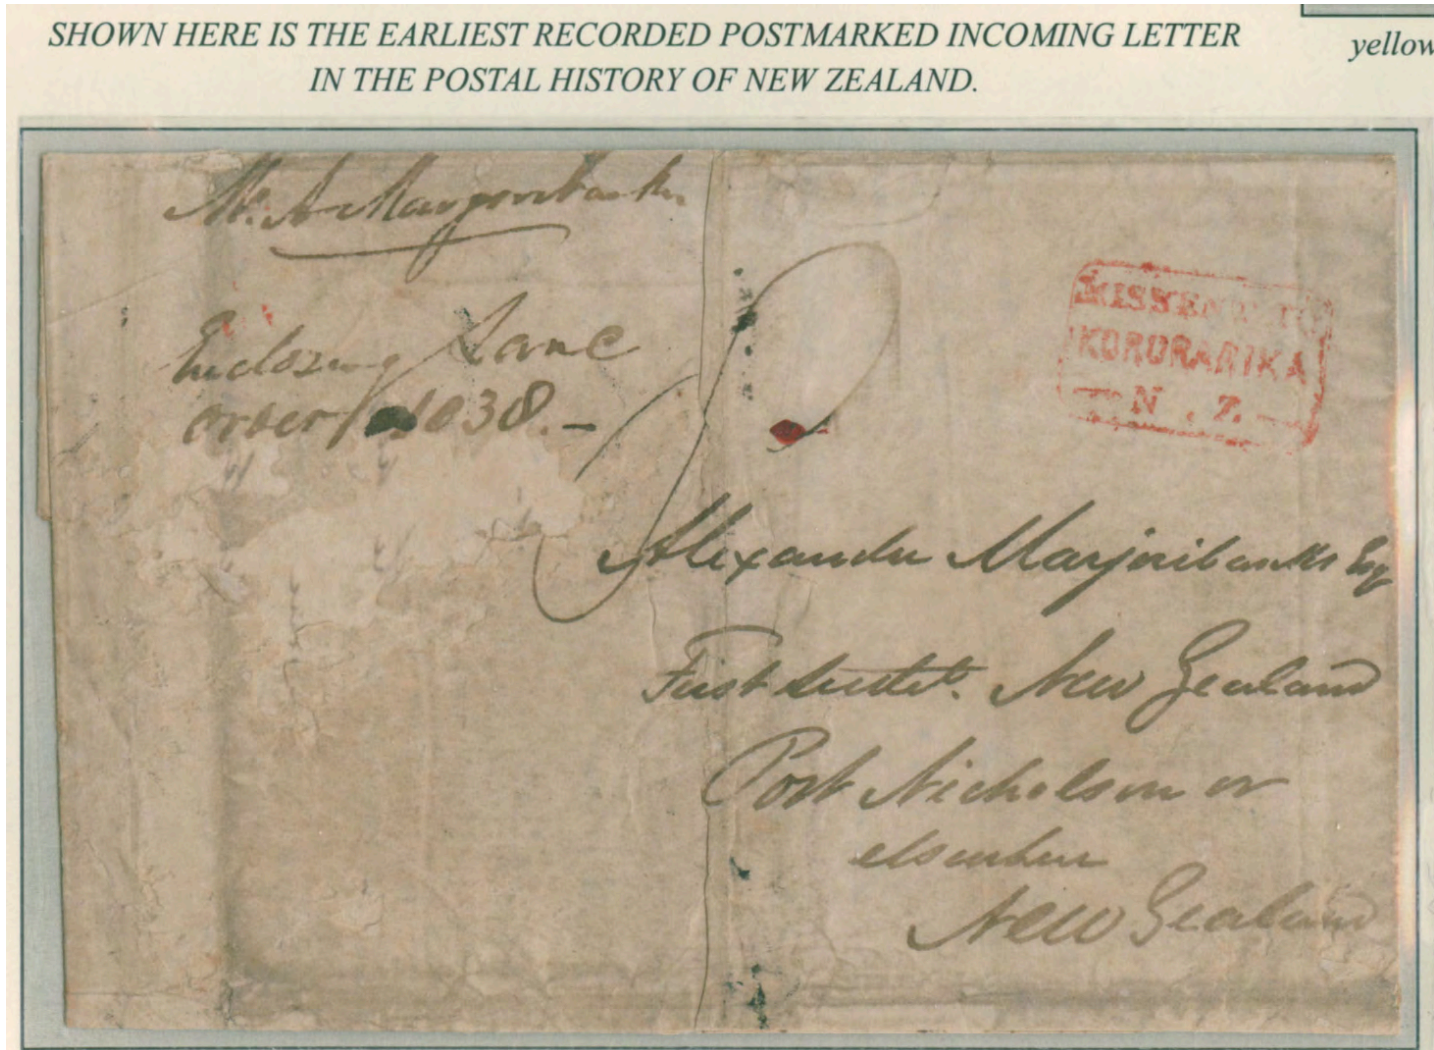 SHOWN HERE IS THE EARLIEST RECORDED POSTMARKED INCOMING LETTER
IN THE POSTAL HISTORY OF NEW ZEALAND.
yellow
Mr. A Marjoribanks
Enclosing Land
order 1038.-
MISSENT TO
KORORARIKA
N . Z.
Alexander Marjoribanks Esq
First New Zealand
Port Nicholson or
elsewhere
New Zealand